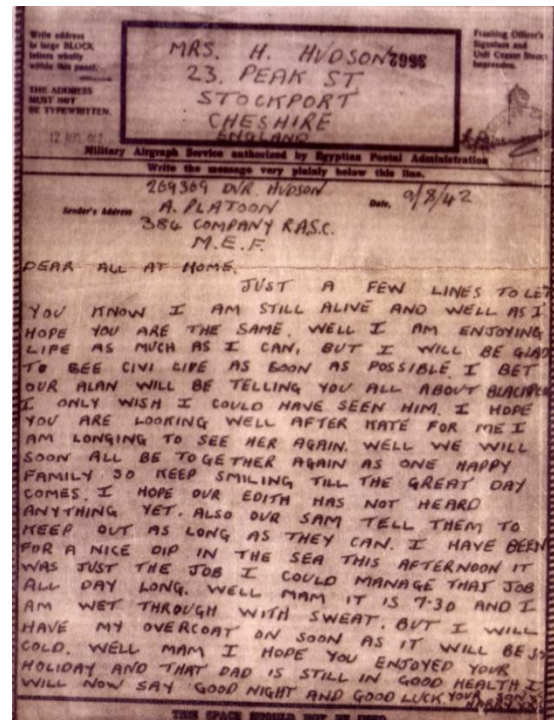 Write address
in large BLOCK
letters wholly
within this panel.
THE ADDRESS
MUST NOT
BE TYPEWRITTEN.
MRS. H. HUDSON
23. PEAK ST
STOCKPORT
CHESHIRE
ENGLAND
Franking Officer's
Signature and
Unit Censor Stamp
Impression.
Military Airgraph Service authorized by Egyptian Postal Administration
Write the message very plainly below this line.
Sender's Address
269369 DVR. HUDSON
A. PLATOON
384 COMPANY R.A.S.C.
M.E.F.
Date. 9/8/42
DEAR ALL AT HOME.
JUST A FEW LINES TO LET
YOU KNOW I AM STILL ALIVE AND WELL AS I
HOPE YOU ARE THE SAME. WELL I AM ENJOYING
LIFE AS MUCH AS I CAN, BUT I WILL BE GLAD
TO SEE CIVI LIFE AS SOON AS POSSIBLE. I BET
OUR ALAN WILL BE TELLING YOU ALL ABOUT
I ONLY WISH I COULD HAVE SEEN HIM. I HOPE
YOU ARE LOOKING WELL AFTER KATE FOR ME I
AM LONGING TO SEE HER AGAIN. WELL WE WILL
SOON ALL BE TOGETHER AGAIN AS ONE HAPPY
FAMILY. SO KEEP SMILING TILL THE GREAT DAY
COMES. I HOPE OUR EDITH HAS NOT HEARD
ANYTHING YET. ALSO OUR SAM TELL THEM TO
KEEP OUT AS LONG AS THEY CAN. I HAVE BEEN
FOR A NICE DIP IN THE SEA THIS AFTERNOON IT
WAS JUST THE JOB I COULD MANAGE THAT JOB
ALL DAY LONG. WELL MAM IT IS 7.30 AND I
AM WET THROUGH WITH SWEAT. BUT I WILL
HAVE MY OVERCOAT ON SOON AS IT WILL BE SO
COLD. WELL MAM I HOPE YOU ENJOYED YOUR
HOLIDAY AND THAT DAD IS STILL IN GOOD HEALTH I
WILL NOW SAY GOOD NIGHT AND GOOD LUCK YOUR SON
HARRY